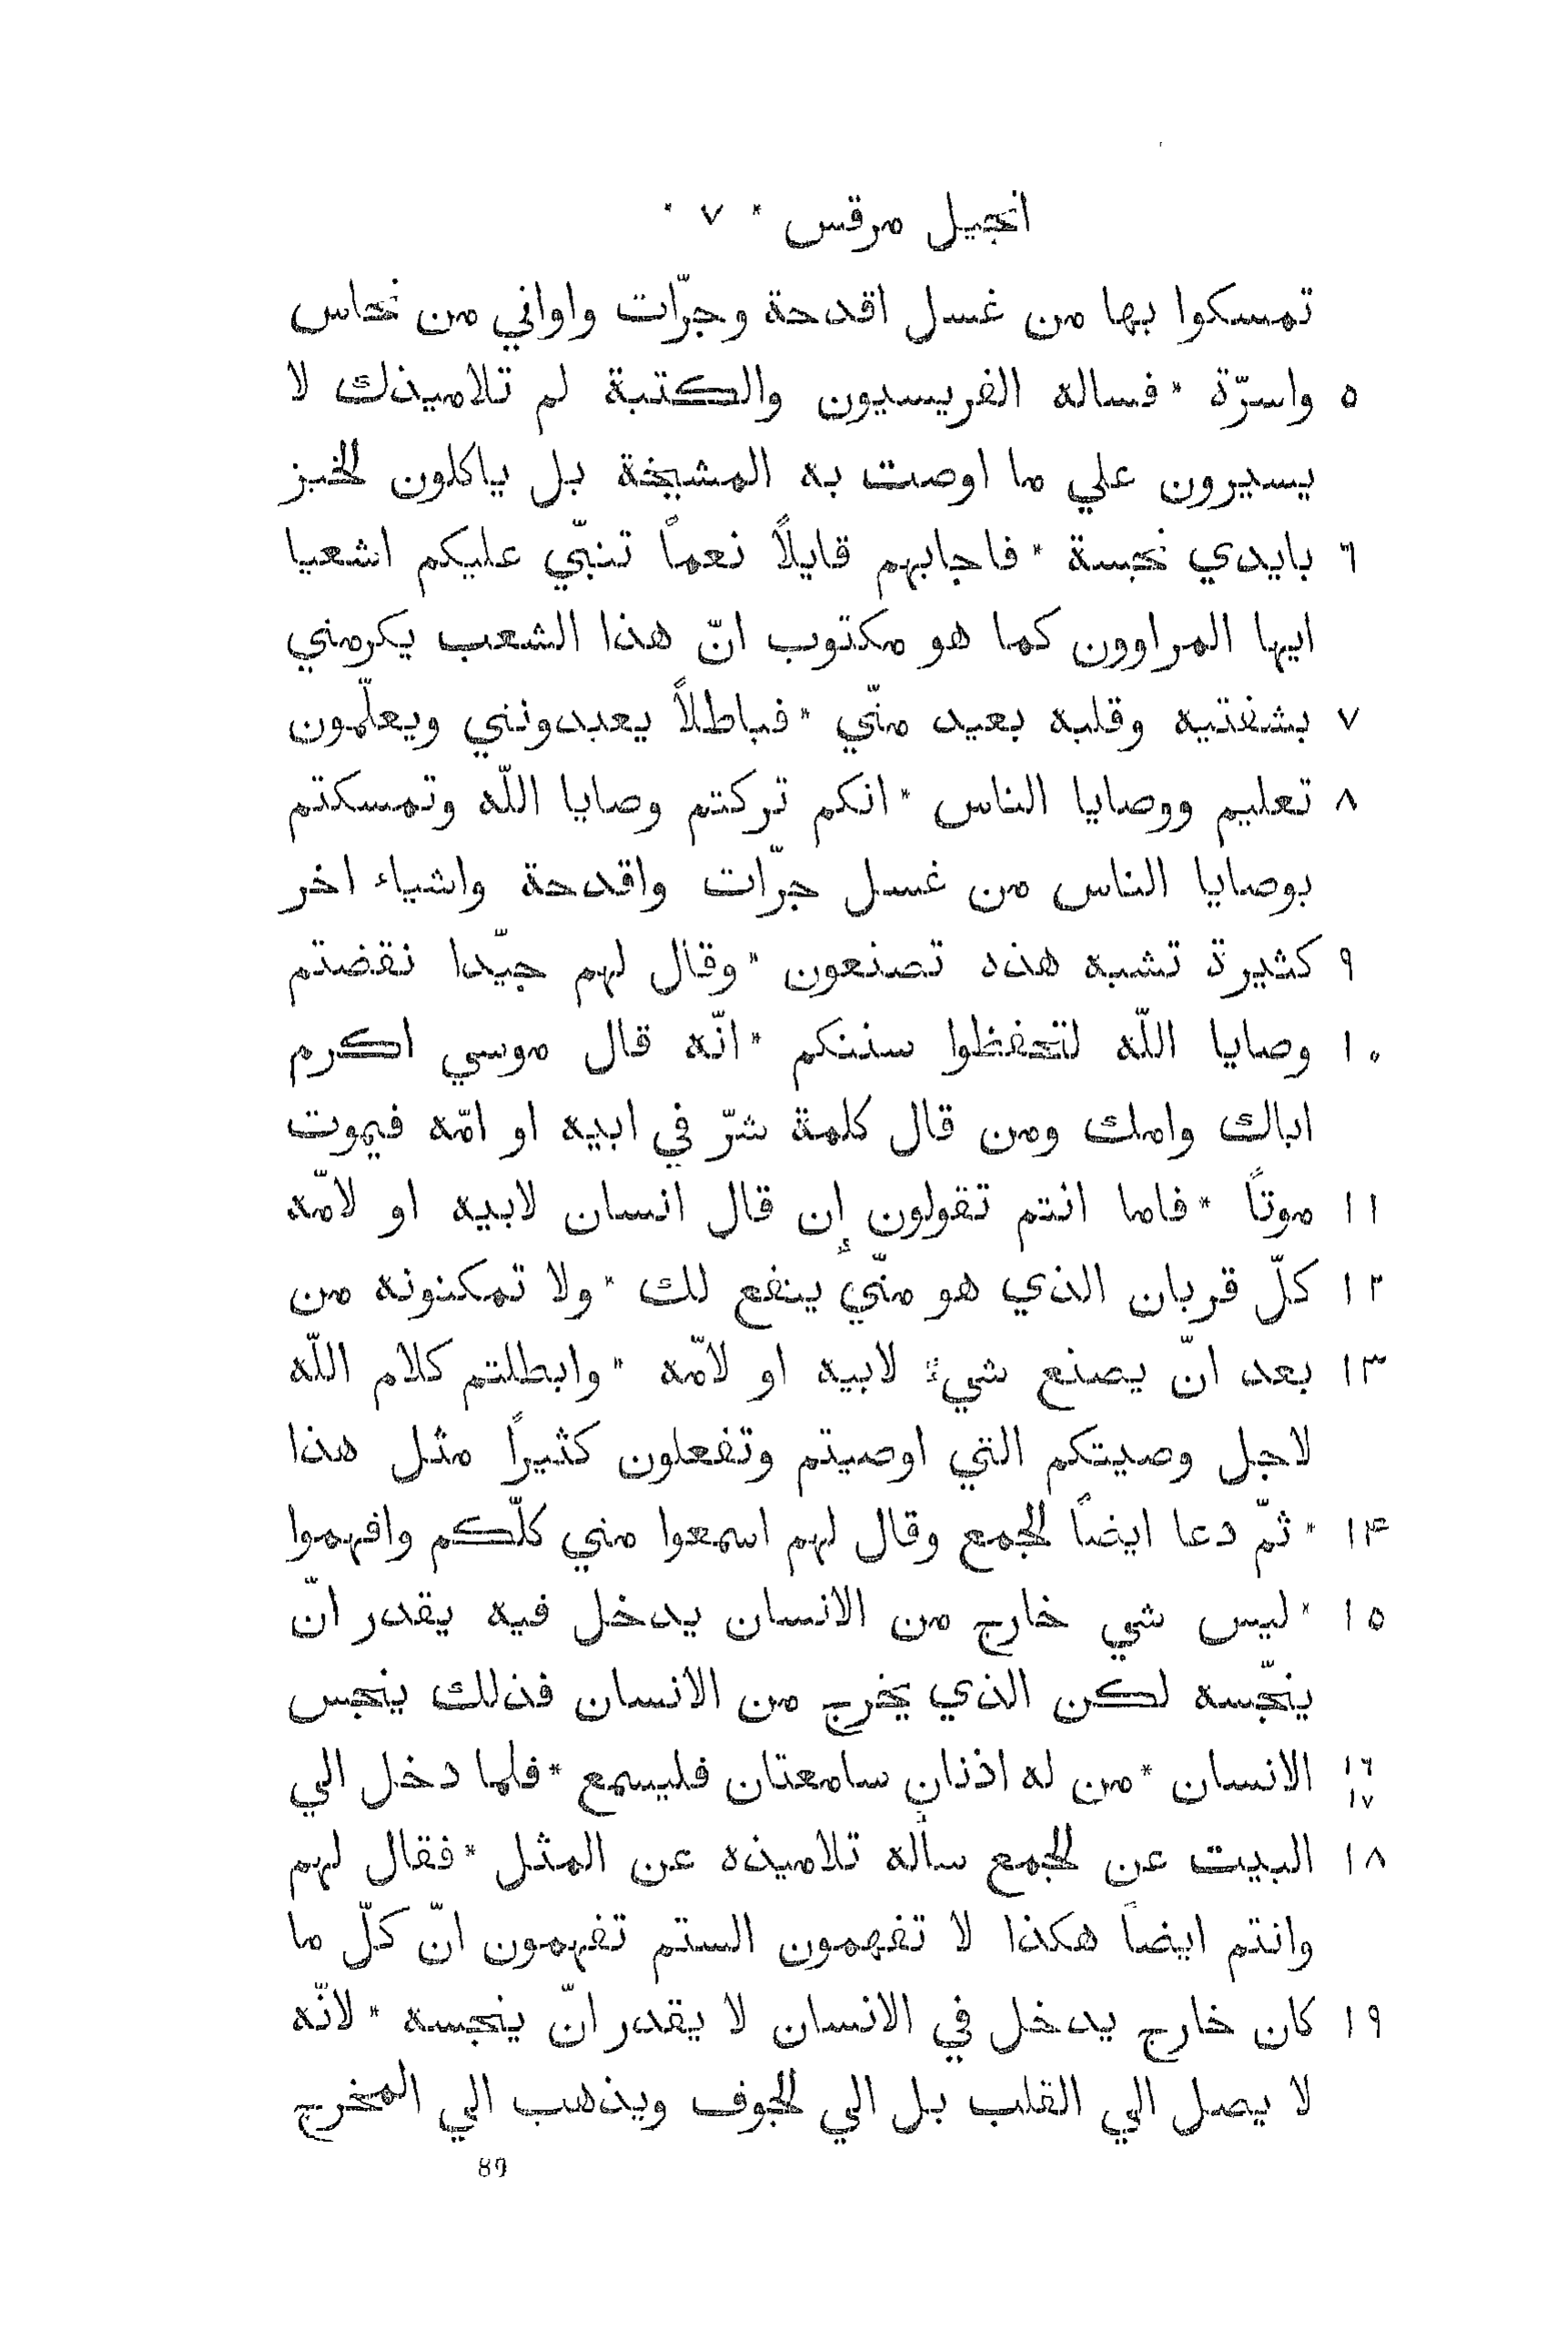 انجيل مرقس * ٧ *
تمسكوا بها من غسل اقدحة وجرّات واواني من نحاس
٥ واسرّة * فساله الفريسيون والكتبة لم تلاميذك لا
يسيرون علي ما اوصت به المشيخة بل ياكلون الخبز
٦ بايدي نجسة * فاجابهم قايلاً نعماً تنبّي عليكم اشعيا
ايها المراوون كما هو مكتوب انّ هذا الشعب يكرمني
٧ بشفتيه وقلبه بعيد منّي * فباطلاً يعبدونني ويعلّمون
٨ تعليم ووصايا الناس * انكم تركتم وصايا اللّه وتمسكتم
بوصايا الناس من غسل جرّات واقدحة واشياء اخر
٩ كثيرة تشبه هذه تصنعون * وقال لهم جيّدا نقضتم
١٠ وصايا اللّه لتحفظوا سننكم * انّه قال موسي اكرم
اباك وامك ومن قال كلمة شرّ في ابيه او امّه فيموت
١١ موتاً * فاما انتم تقولون إن قال انسان لابيه او لامّه
١٢ كلّ قربان الذي هو منّي ينفع لك * ولا تمكنونه من
١٣ بعد انّ يصنع شيءً لابيه او لامّه * وابطلتم كلام اللّه
لاجل وصيتكم التي اوصيتم وتفعلون كثيراً مثل هذا
١٤ * ثمّ دعا ايضاً الجمع وقال لهم اسمعوا مني كلّكم وافهموا
١٥ * ليس شي خارج من الانسان يدخل فيه يقدر انّ
ينجّسه لكن الذي يخرج من الانسان فذلك ينجس
١٦ ١٧ الانسان * من له اذنان سامعتان فليسمع * فلما دخل الي
١٨ البيت عن الجمع سأله تلاميذه عن المثل * فقال لهم
وانتم ايضاً هكذا لا تفهمون الستم تفهمون انّ كلّ ما
١٩ كان خارج يدخل في الانسان لا يقدر انّ ينجسه * لانّه
لا يصل الي القلب بل الي الجوف ويذهب الي المخرج
89